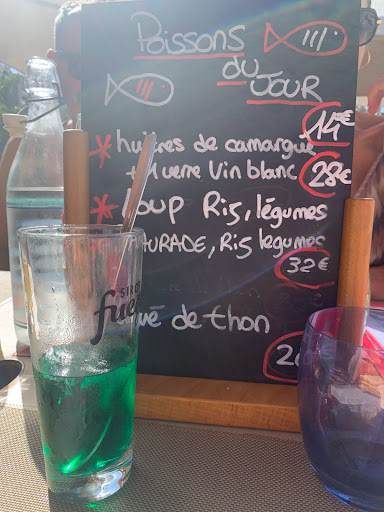 Poissons
du
JOUR
* huitres de camargue 14€
+ 1 verre Vin blanc 28€
* Loup Riz, légumes
AURADE, Riz legumes
32€
de thon
SIRO
fue